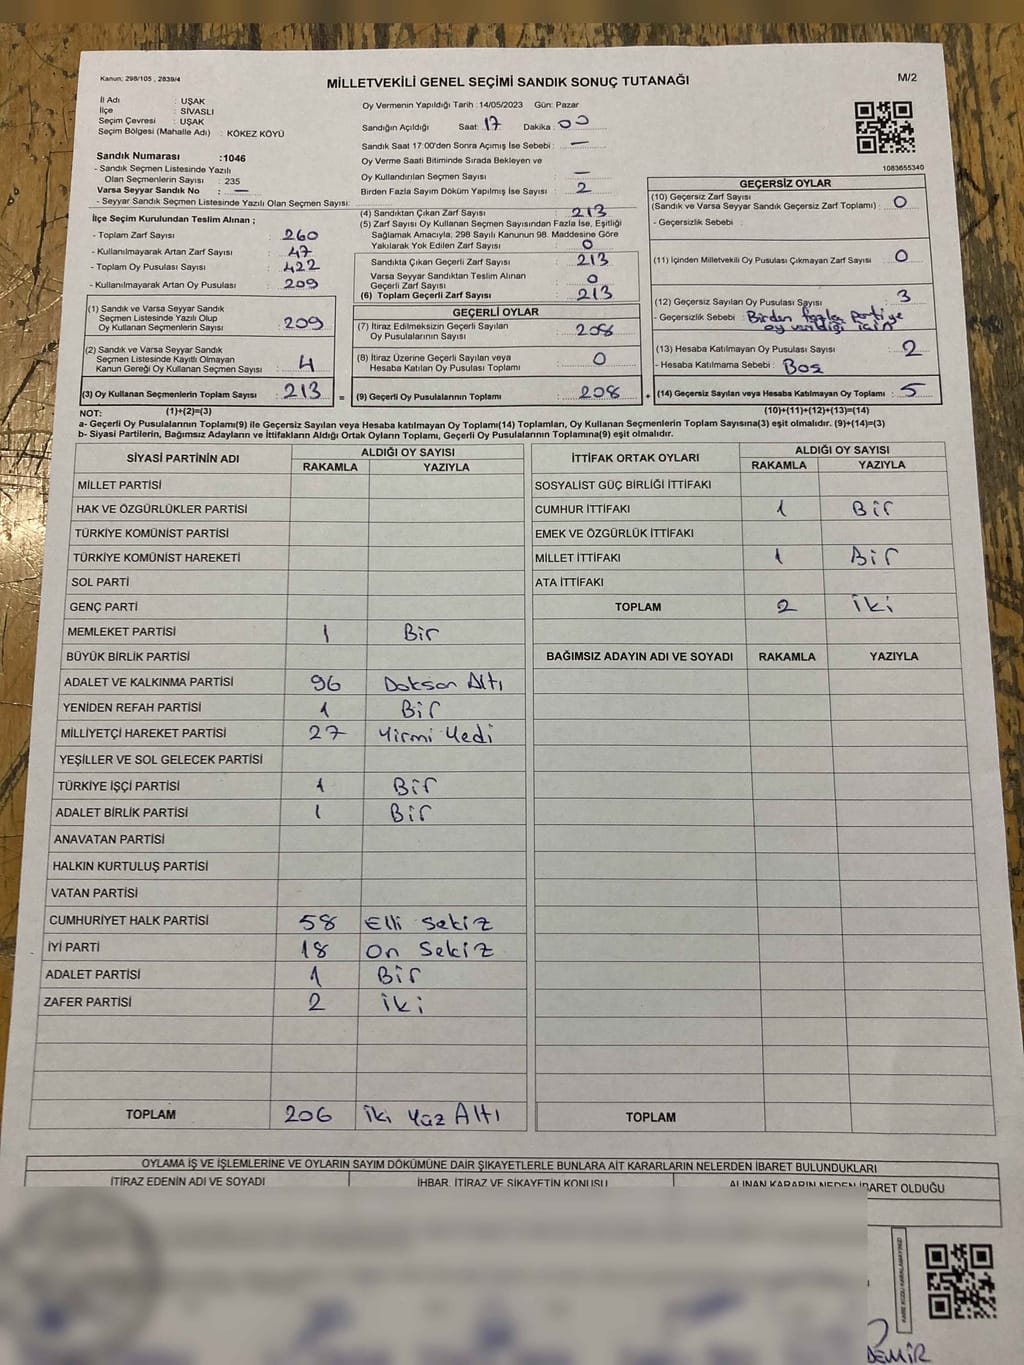 Kanun; 298/105 , 2839/4
MİLLETVEKİLİ GENEL SEÇİMİ SANDIK SONUÇ TUTANAĞI
M/2
İl Adı : UŞAK
İlçe : SİVASLI
Seçim Çevresi : UŞAK
Seçim Bölgesi (Mahalle Adı) : KÖKEZ KÖYÜ
Oy Vermenin Yapıldığı Tarih :14/05/2023 Gün: Pazar
Sandığın Açıldığı Saat: 17 Dakika : 00
Sandık Saat 17:00'den Sonra Açımış İse Sebebi : —
Oy Verme Saati Bitiminde Sırada Bekleyen ve
Oy Kullandırılan Seçmen Sayısı : —
Birden Fazla Sayım Döküm Yapılmış İse Sayısı : 2
1083655340
Sandık Numarası :1046
- Sandık Seçmen Listesinde Yazılı
Olan Seçmenlerin Sayısı : 235
Varsa Seyyar Sandık No : —
- Seyyar Sandık Seçmen Listesinde Yazılı Olan Seçmen Sayısı:
İlçe Seçim Kurulundan Teslim Alınan ;
- Toplam Zarf Sayısı : 260
- Kullanılmayarak Artan Zarf Sayısı : 47
- Toplam Oy Pusulası Sayısı : 422
- Kullanılmayarak Artan Oy Pusulası : 209
(1) Sandık ve Varsa Seyyar Sandık
Seçmen Listesinde Yazılı Olup
Oy Kullanan Seçmenlerin Sayısı : 209
(2) Sandık ve Varsa Seyyar Sandık
Seçmen Listesinde Kayıtlı Olmayan
Kanun Gereği Oy Kullanan Seçmen Sayısı : 4
(3) Oy Kullanan Seçmenlerin Toplam Sayısı : 213 =
(4) Sandıktan Çıkan Zarf Sayısı : 213
(5) Zarf Sayısı Oy Kullanan Seçmen Sayısından Fazla İse, Eşitliği
Sağlamak Amacıyla, 298 Sayılı Kanunun 98. Maddesine Göre
Yakılarak Yok Edilen Zarf Sayısı : 0
Sandıkta Çıkan Geçerli Zarf Sayısı : 213
Varsa Seyyar Sandıktan Teslim Alınan
Geçerli Zarf Sayısı : 0
(6) Toplam Geçerli Zarf Sayısı : 213
GEÇERLİ OYLAR
(7) İtiraz Edilmeksizin Geçerli Sayılan
Oy Pusulalarının Sayısı : 208
(8) İtiraz Üzerine Geçerli Sayılan veya
Hesaba Katılan Oy Pusulası Toplamı : 0
(9) Geçerli Oy Pusulalarının Toplamı : 208 +
GEÇERSİZ OYLAR
(10) Geçersiz Zarf Sayısı
(Sandık ve Varsa Seyyar Sandık Geçersiz Zarf Toplamı) : 0
- Geçersizlik Sebebi :
(11) İçinden Milletvekili Oy Pusulası Çıkmayan Zarf Sayısı : 0
(12) Geçersiz Sayılan Oy Pusulası Sayısı : 3
- Geçersizlik Sebebi : Birden fazla Partiye
oy verildiği için
(13) Hesaba Katılmayan Oy Pusulası Sayısı : 2
- Hesaba Katılmama Sebebi : Boş
(14) Geçersiz Sayılan veya Hesaba Katılmayan Oy Toplamı : 5
NOT: (1)+(2)=(3)
(10)+(11)+(12)+(13)=(14)
a- Geçerli Oy Pusulalarının Toplamı(9) ile Geçersiz Sayılan veya Hesaba katılmayan Oy Toplamı(14) Toplamları, Oy Kullanan Seçmenlerin Toplam Sayısına(3) eşit olmalıdır. (9)+(14)=(3)
b- Siyasi Partilerin, Bağımsız Adayların ve İttifakların Aldığı Ortak Oyların Toplamı, Geçerli Oy Pusulalarının Toplamına(9) eşit olmalıdır.
SİYASİ PARTİNİN ADI ALDIĞI OY SAYISI
RAKAMLA YAZIYLA
MİLLET PARTİSİ
HAK VE ÖZGÜRLÜKLER PARTİSİ
TÜRKİYE KOMÜNİST PARTİSİ
TÜRKİYE KOMÜNİST HAREKETİ
SOL PARTİ
GENÇ PARTİ
MEMLEKET PARTİSİ 1 Bir
BÜYÜK BİRLİK PARTİSİ
ADALET VE KALKINMA PARTİSİ 96 Doksan Altı
YENİDEN REFAH PARTİSİ 1 Bir
MİLLİYETÇİ HAREKET PARTİSİ 27 Yirmi Yedi
YEŞİLLER VE SOL GELECEK PARTİSİ
TÜRKİYE İŞÇİ PARTİSİ 1 Bir
ADALET BİRLİK PARTİSİ 1 Bir
ANAVATAN PARTİSİ
HALKIN KURTULUŞ PARTİSİ
VATAN PARTİSİ
CUMHURİYET HALK PARTİSİ 58 Elli Sekiz
İYİ PARTİ 18 On Sekiz
ADALET PARTİSİ 1 Bir
ZAFER PARTİSİ 2 iki
TOPLAM 206 iki Yüz Altı
İTTİFAK ORTAK OYLARI ALDIĞI OY SAYISI
RAKAMLA YAZIYLA
SOSYALİST GÜÇ BİRLİĞİ İTTİFAKI
CUMHUR İTTİFAKI 1 Bir
EMEK VE ÖZGÜRLÜK İTTİFAKI
MİLLET İTTİFAKI 1 Bir
ATA İTTİFAKI
TOPLAM 2 iki
BAĞIMSIZ ADAYIN ADI VE SOYADI RAKAMLA YAZIYLA
TOPLAM
OYLAMA İŞ VE İŞLEMLERİNE VE OYLARIN SAYIM DÖKÜMÜNE DAİR ŞİKAYETLERLE BUNLARA AİT KARARLARIN NELERDEN İBARET BULUNDUKLARI
İTİRAZ EDENİN ADI VE SOYADI İHBAR, İTİRAZ VE ŞİKAYETİN KONUSU ALINAN KARARIN NEDEN İBARET OLDUĞU
KARE KODU KARALAMAYINIZ!
DEMİR